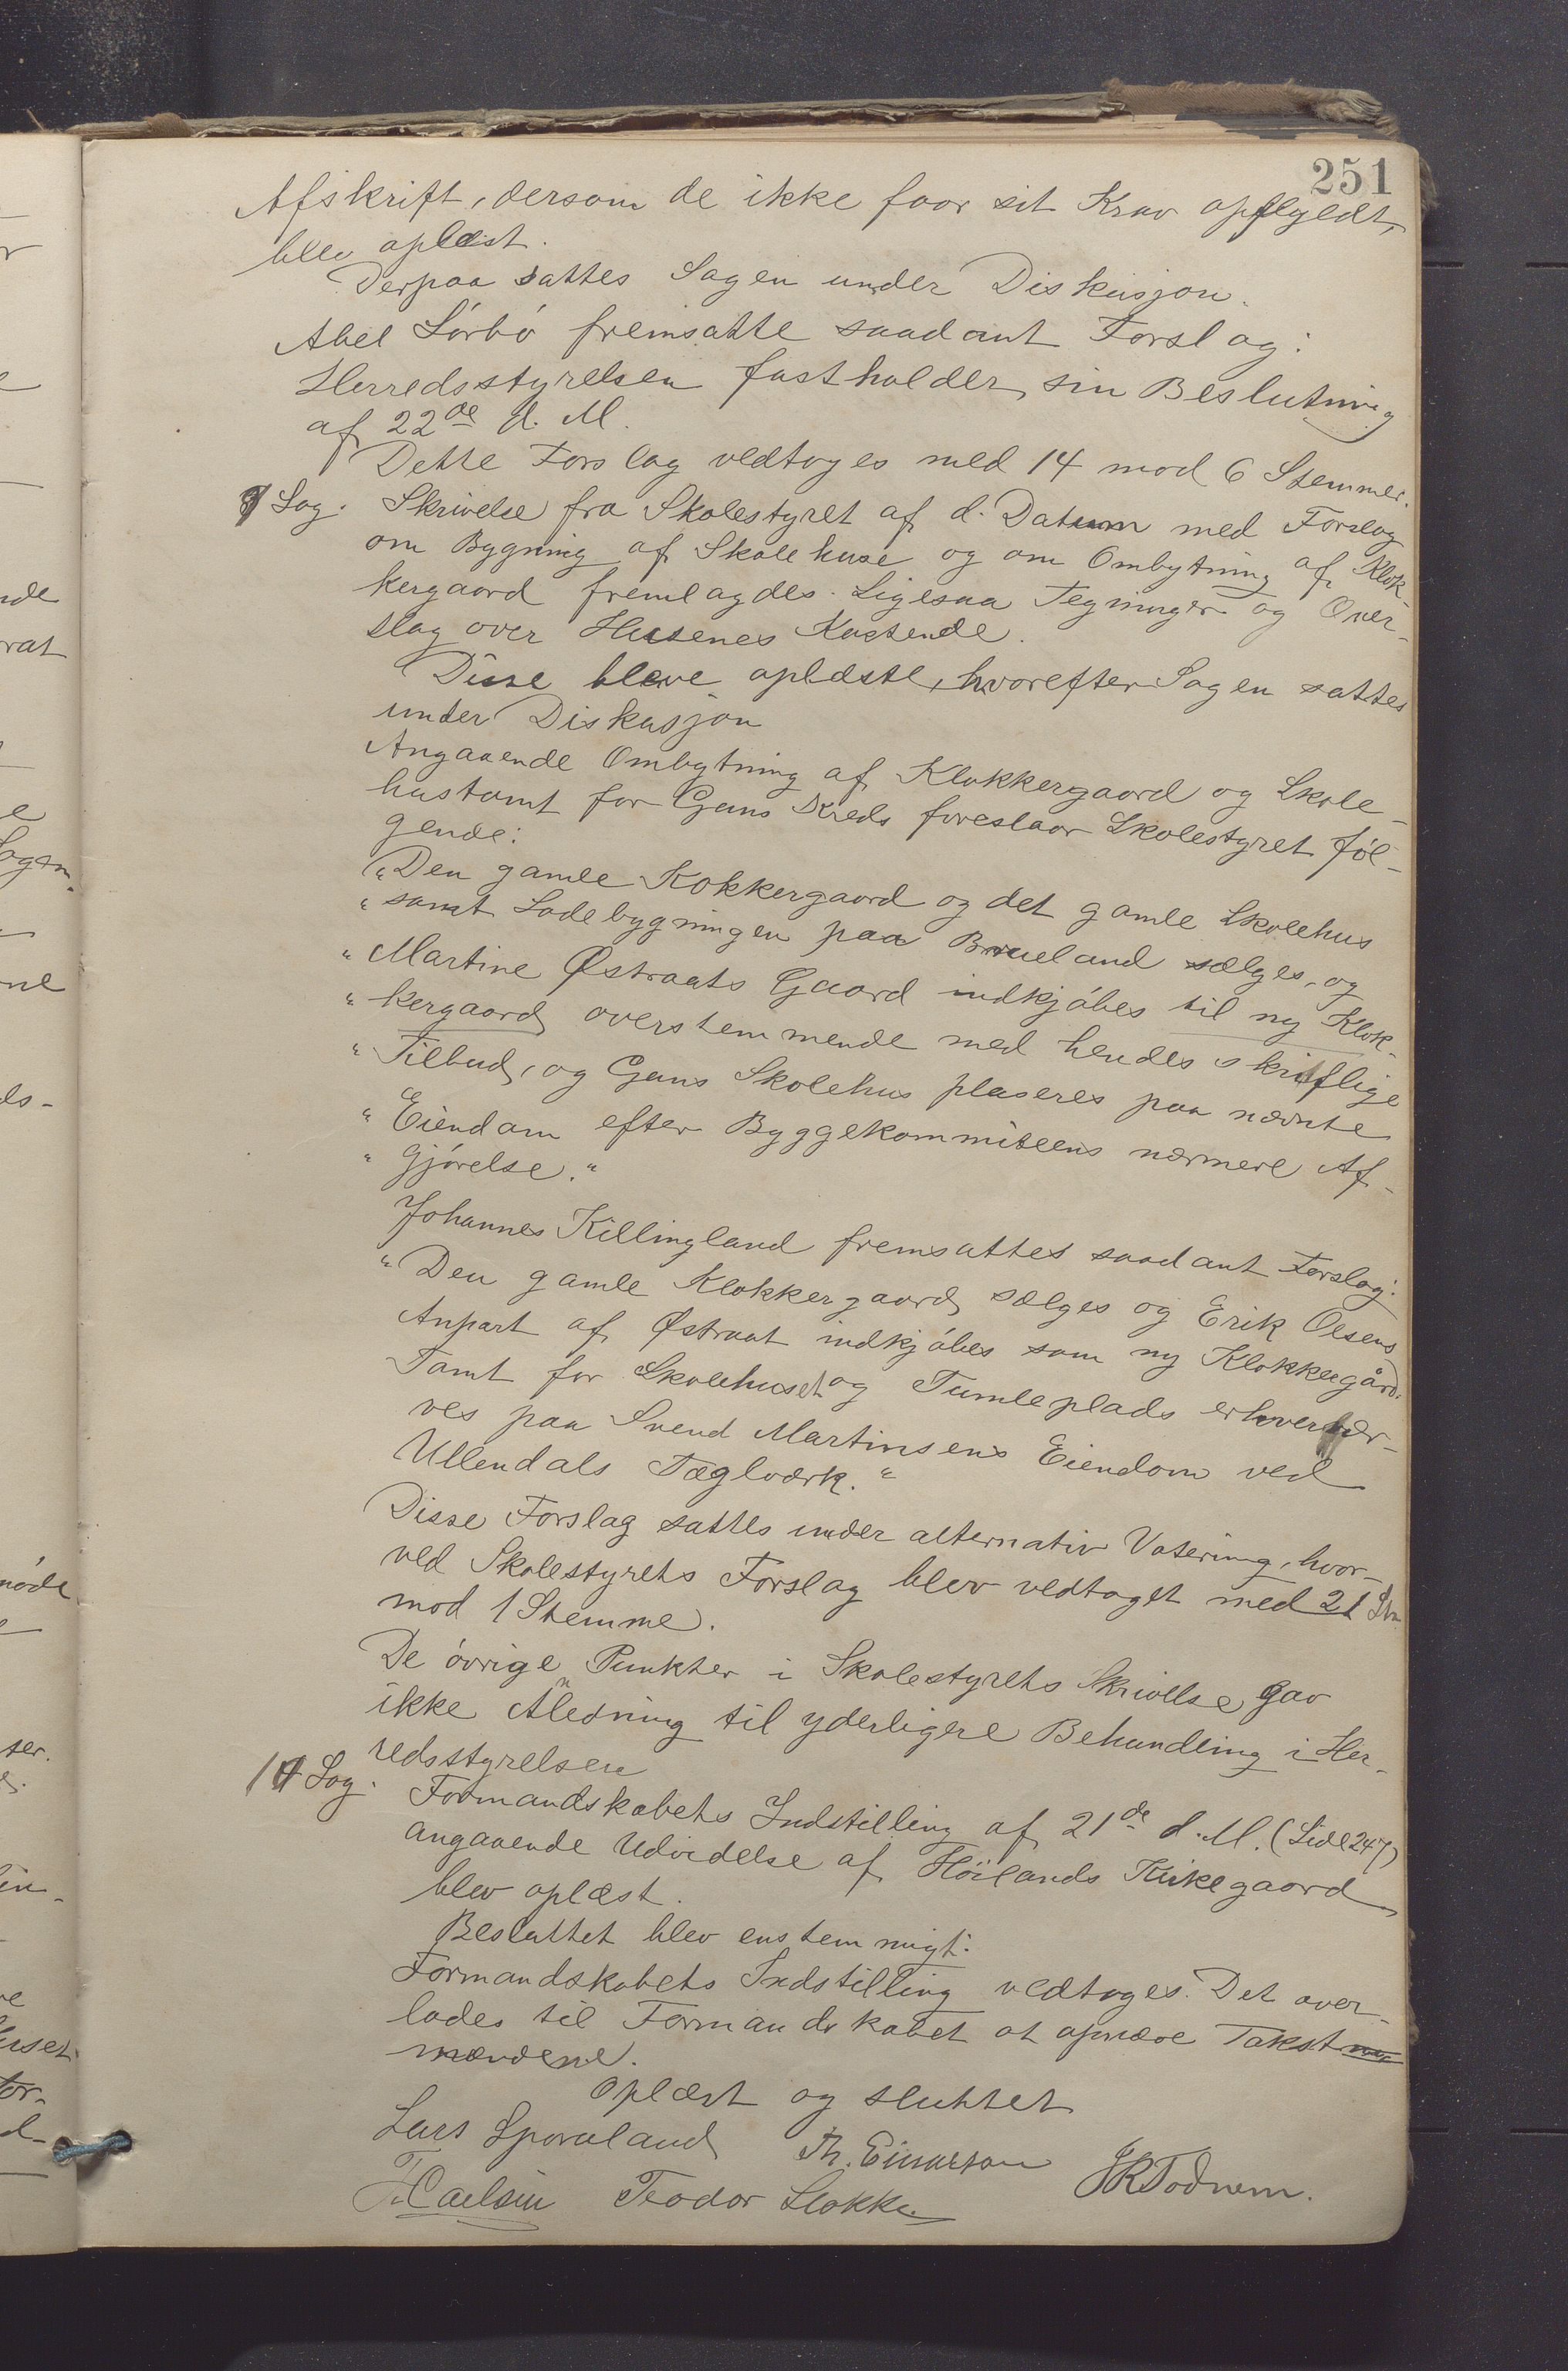 251
Afskrift, dersom de ikke faar sit Krav opfyldt,
blev oplæst.
Derpaa sattes Sagen under Diskusjon.
Abel Sórbó fremsatte saadant Forslag:
Herredsstyrelsen fastholder sin Beslutning
af 22de d. M.
Dette Forslag vedtoges med 14 mod 6 Stemmer.
Sag. Skrivelse fra Skolestyret af d. Datum med Forslag
om Bygning af Skolehuse og om Ombytning af Klok-
kergaard fremlagdes. Ligesaa Tegninger og Over-
slag over Husenes Kostende.
Disse bleve oplæste, hvorefter Sagen sattes
under Diskusjon
Angaaende Ombytning af Klokkergaard og Skole-
hustomt for Gans Kreds foreslaar Skolestyret føl-
gende:
"Den gamle Kokkergaard og det gamle Skolehus
" samt Ladebygningen paa Brueland sælges, og
" Martine Østraats Gaard indkjóbes til ny Klok-
" kergaard overstemmende med hendes skriftlige
" Tilbud, og Gans Skolehus plaseres paa nævnte
" Eiendom efter Byggekommiteens nærmere Af-
" gjórelse."
Johannes Killingland fremsattes saadant Forslag:
"Den gamle Klokkergaard sælges og Erik Olsens
Anpart af Østraat indkjóbes som ny Klokkergård.
Tomt for Skolehuset og Tumleplads erhverver-
ves paa Svend Martinsens Eiendom ved
Ullendals Tæglværk."
Disse Forslag sattes under alternativ Votering, hvor-
ved Skolestyrets Forslag blev vedtaget med 21 Stm.
mod 1 Stemme.
De óvrige Punkter i Skolestyrets Skrivelse gav
ikke Anledning til yderligere Behandling i Her-
redsstyrelsen
Sag. Formandskabets Indstilling af 21de d. M. (Side 247)
angaaende Udvidelse af Hóilands Kirkegaard
blev oplæst.
Besluttet blev enstemmigt:
Formandskabets Indstilling vedtoges. Det over-
lades til Formandskabet at opnæve Takst
mændene.
Oplæst og sluttet
Lars Sporaland Th. Einarson JR Todnem.
T. Carlsen Teodor Stokke